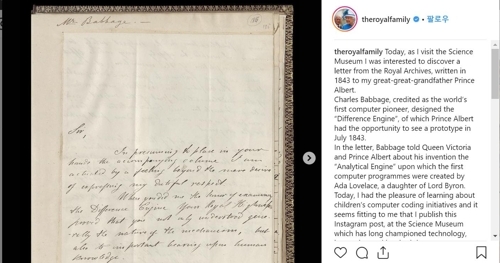 Mr Babbage. —
Sir,
In presuming to place in your
hands the accompanying volume I am
actuated by a feeling beyond the mere desire
of expressing my dutiful respect
When you did me the honor of examining
the Difference Engine Your Royal Highness
proved that you not only understood
the nature of the mechanism, but
also its important bearing upon human
knowledge.
theroyalfamily • 팔로우
theroyalfamily Today, as I visit the Science
Museum I was interested to discover a
letter from the Royal Archives, written in
1843 to my great-great-grandfather Prince
Albert.
Charles Babbage, credited as the world's
first computer pioneer, designed the
"Difference Engine", of which Prince Albert
had the opportunity to see a prototype in
July 1843.
In the letter, Babbage told Queen Victoria
and Prince Albert about his invention the
"Analytical Engine" upon which the first
computer programmes were created by
Ada Lovelace, a daughter of Lord Byron.
Today, I had the pleasure of learning about
children's computer coding initiatives and it
seems fitting to me that I publish this
Instagram post, at the Science Museum
which has long championed technology,